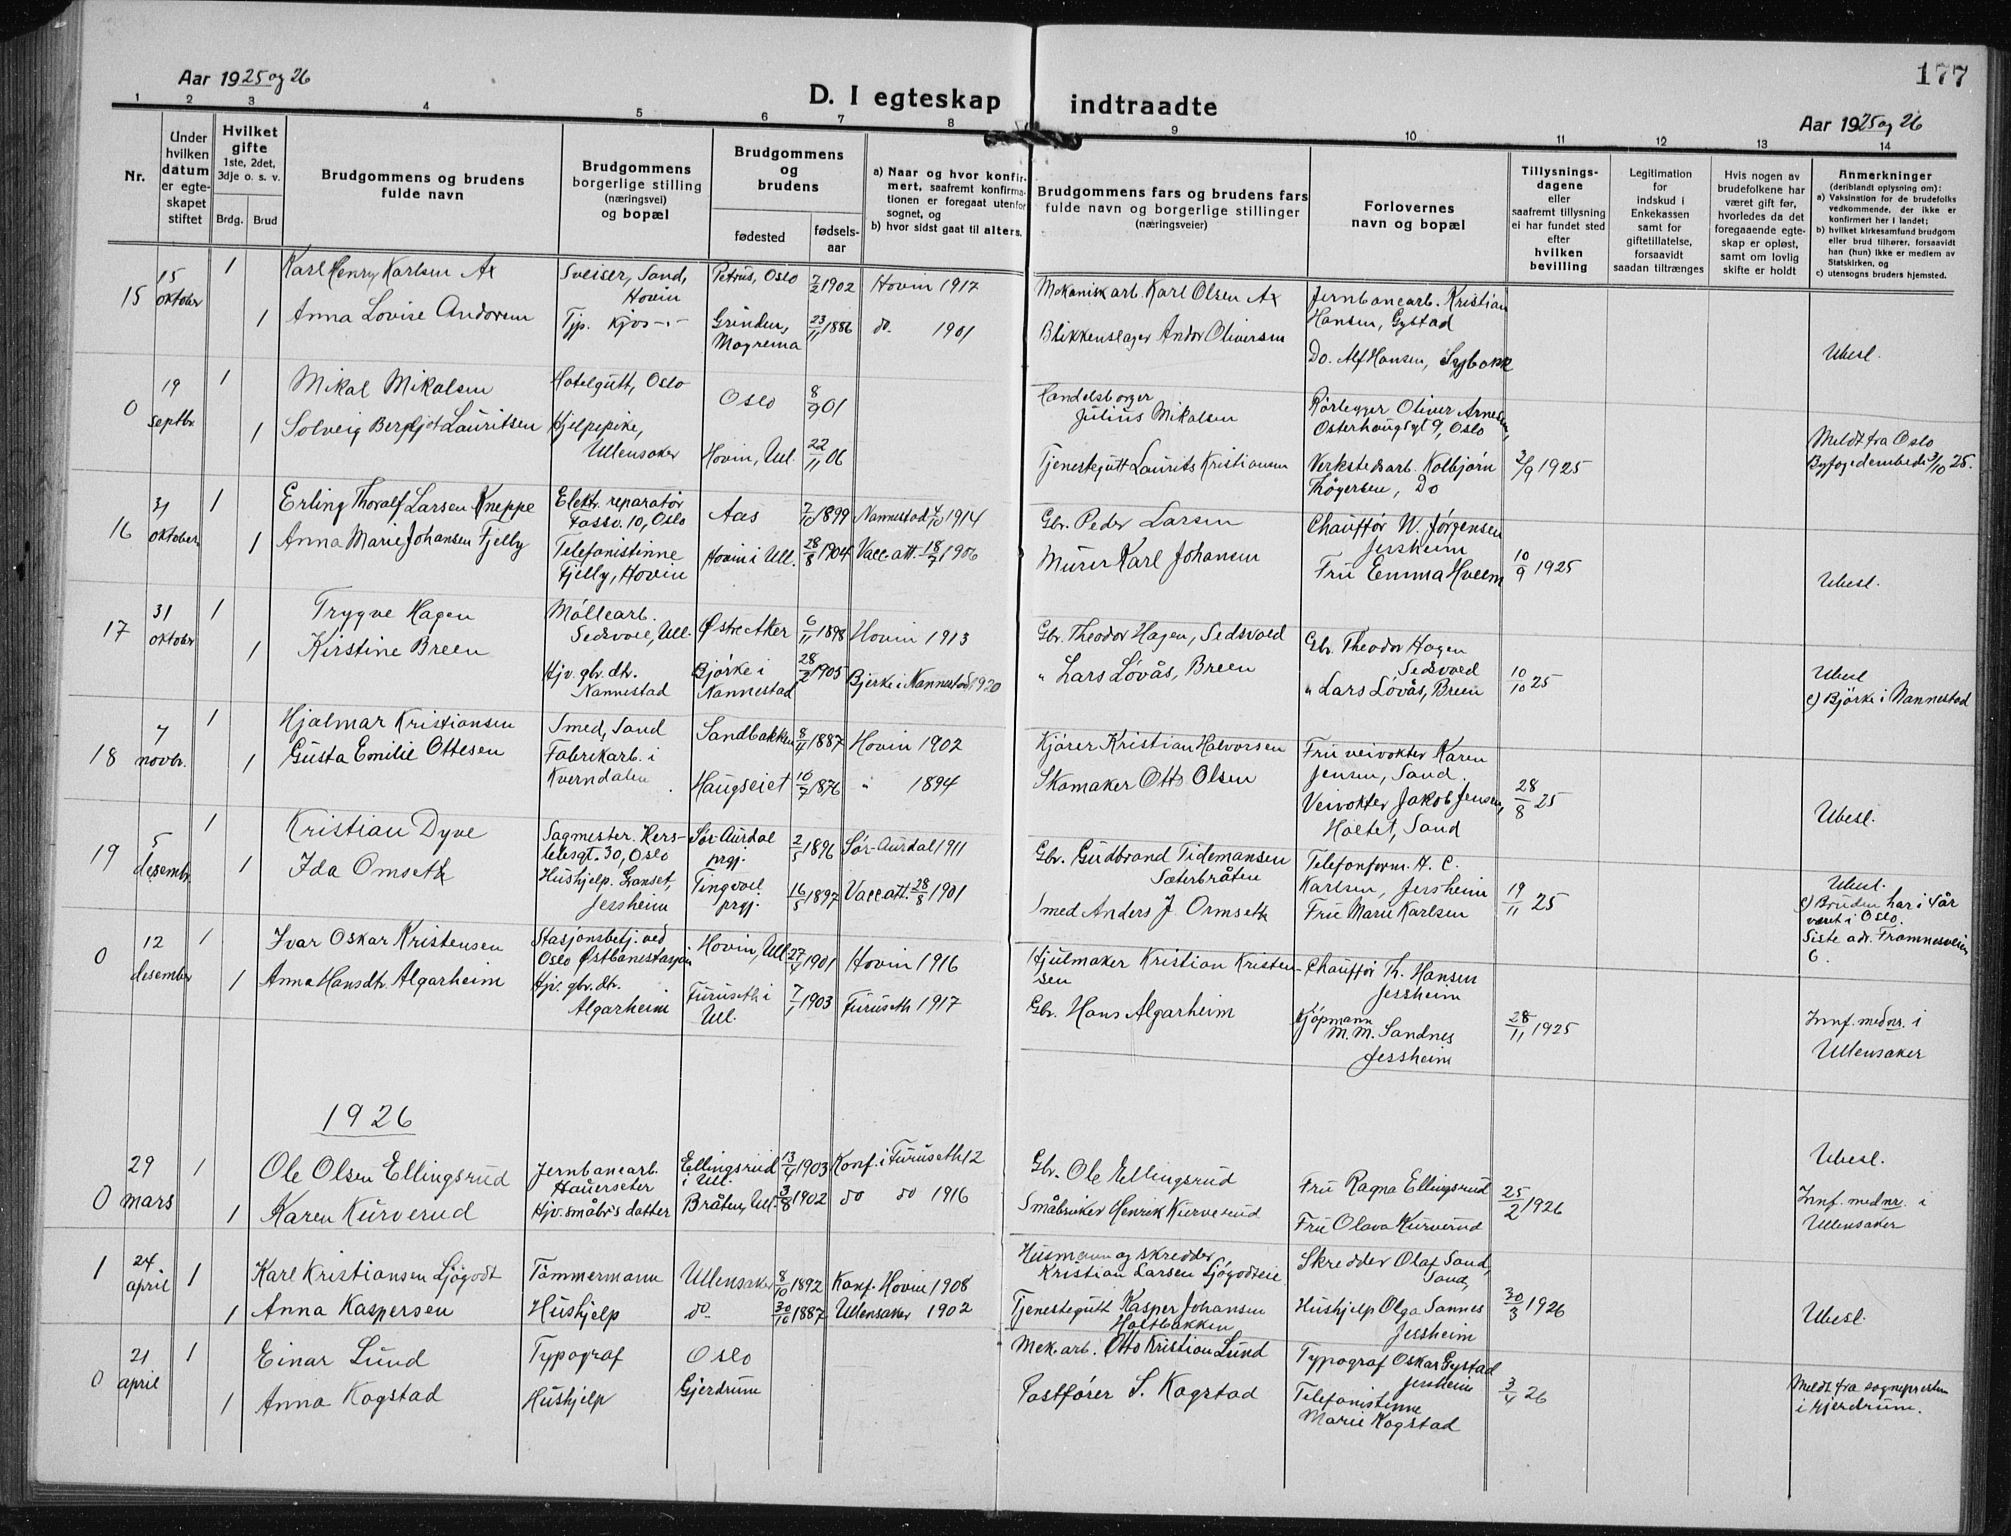 177
Aar 1925 og 26
D. I egteskap indtraadte
Aar 1925 og 26
1 2 3 4 5 6 7 8 9 10 11 12 13 14
Nr.
Under hvilken datum er egte-skapet stiftet
Hvilket gifte
1ste, 2det, 3dje o. s. v.
Brdg. Brud
Brudgommens og brudens fulde navn
Brudgommens borgerlige stilling (næringsvei) og bopæl
Brudgommens og brudens
fødested
fødsels-aar
a) Naar og hvor konfir-mert, saafremt konfirma-tionen er foregaat utenfor sognet, og
b) hvor sidst gaat til alters.
Brudgommens fars og brudens fars fulde navn og borgerlige stillinger (næringsveier)
Forlovernes navn og bopæl
Tillysnings-dagene eller saafremt tillysning ei har fundet sted efter hvilken bevilling
Legitimation for indskud i Enkekassen samt for giftetillatelse, forsaavidt saadan tiltrænges
Hvis nogen av brudefolkene har været gift før, hvorledes da det foregaaende egte-skap er opløst, samt om lovlig skifte er holdt
Anmerkninger
(deriblandt oplysning om):
a) Vaksination for de brudefolks vedkommende, der ikke er konfirmert her i landet;
b) hvilket kirkesamfund brudgom eller brud tilhører, forsaavidt han (hun) ikke er medlem av Statskirken, og
c) utensogns bruders hjemsted.
15 15 oktober 1 Karl Henry Karlsen Ax Sveiser, Sand, Hovin Petrus, Oslo 7/2 1902 Hovin 1917 Mekanisk arb. Karl Olsen Ax Jernbanearb. Kristian Hansen, Gystad
1 Anna Lovise Andorsen Tjp. Kjos -"- Grinden, Mogrema 23/11 1886 do. 1901 Blikkenslager Andor Oliversen Do. Alf Hansen, Ubesl.
0 19 septbr. 1 Mikal Mikalsen Hotelgutt, Oslo Oslo 8/9 01 Handelsborger Julius Mikalsen Rörlegger Oliver Arnesen, Osterhausgt 9, Oslo
1 Solveig Bergljot Lauritsen Hjelpepike, Ullensaker Hovin, Ull. 22/11 06 Tjenestegutt Laurits Kristiansen Verkstedsarb. Kolbjørn Thøgersen, Do 3/9 1925 Meldt fra Oslo Byfogedembede 3/10 25.
16 31 oktober 1 Erling Thoralf Larsen Kneppe Elektr. reparatør Fossv. 10, Oslo Aas 7/10 1899 Nannestad 4/10 1914 Gbr. Peder Larsen Chauffør W. Jørgensen Jessheim
1 Anna Marie Johansen Fjelby Telefonistinne Fjelby, Hovin Hovin i Ull. 28/8 1904 Vacc. att. 18/7 1906 Murer Karl Johansen Fru Emma Hveem 10/9 1925 Ubesl.
17 31 oktober 1 Trygve Hagen Møllearb. Sedsvoll, Ull. Østre Aker 6/11 1898 Hovin 1913 Gbr. Theodor Hagen, Sedsvold Gbr. Theodor Hagen Sedsvold
1 Kirstine Breen Hjv. gbr. dtr. Nannestad Bjørke i Nannestad 28/2 1905 Bjerke i Nannestad 1920 " Lars Løvås, Breen " Lars Løvås, Breen 10/10 25 Ubesl c) Bjørke i Nannestad
18 7 novbr. 1 Hjalmar Kristiansen Smed, Sand Sandbakken 8/4 1887 Hovin 1902 Kjører Kristian Halvorsen Fru veivokter Karen Jensen, Sand.
1 Gusta Emilie Ottesen Fabrikarb. i Kverndalen Haugseiet 10/7 1876 " 1894 Skomaker Otto Olsen Veivokter Jakob Jensen, Holtet, Sand 28/8 25 Ubesl.
19 5 desembr. 1 Kristian Dyve Sagmester. Hers-lebsgt. 30, Oslo Sør-Aurdal prgj. 2/5 1896 Sør-Aurdal 1911 Gbr. Gudbrand Tidemansen Sæterbråten Telefonform. A. C. Karlsen, Jessheim
1 Ida Omseth Hushjelp. Granset, Jessheim Tingvoll prgj. 16/5 1897 Vacc att. 28/8 1901 Smed Anders J. Ormseth Fru Marie Karlsen 19/11 25 Ubesl. c) Bruden har i 4 år været i Oslo. Siste adr. Framnesveien 6.
0 12 desember 1 Ivar Oskar Kristensen Stasjonsbetj. ved Oslo Østbanestasjon Hovin, Ull 27/4 1901 Hovin 1916 Hjulmaker Kristian Kristen-sen Chauffør Th. Hansen Jessheim
1 Anna Hansdtr. Algarheim Hjv. gbr. dtr. Algarheim Furuseth i Ull. 7/1 1903 Furuseth 1917 Gbr. Hans Algarheim Kjøpmann M. M. Sandnes Jessheim 28/11 1925 Innf. med nr. i Ullensaker
1926
0 29 mars 1 Ole Olsen Ellingsrud Jernbanearb. Hauerseter Ellingsrud i Ull. 13/4 1903 Konf. i Furuseth 12 Gbr. Ole Ellingsrud Fru Ragna Ellingsrud Ubesl.
1 Karen Kurverud Hjv. småbr's datter Bråten, Ull. 3/8 1902 do do 1916 Småbruker Henrik Kurverud Fru Olava Kurverud 25/2 1926 Innf. med nr. i Ullensaker
1 24. april 1 Karl Kristiansen Sjøgodt Tømmermann Ullensaker 8/10 1892 Konf. Hovin 1908 Husmann og skredder Kristian Larsen Sjøgodteie Skredder Olaf Sand, Sand,
1 Anna Kaspersen Hushjelp do. 30/10 1887 Ullensaker 1902 Tjenestegutt Kasper Johansen Holtbakken Hushjelp Olga Sannes Jessheim 30/3 1926 Ubesl.
0 21 april 1 Einar Lund Typograf Oslo Mek. arb. Otto Kristian Lund Typograf Oskar Gystad Jessheim
1 Anna Kogstad Hushjelp Gjerdrum Postfører S. Kogstad Telefonistinne Marie Kogstad 3/4 26 Meldt fra sognepresten i Gjerdrum.